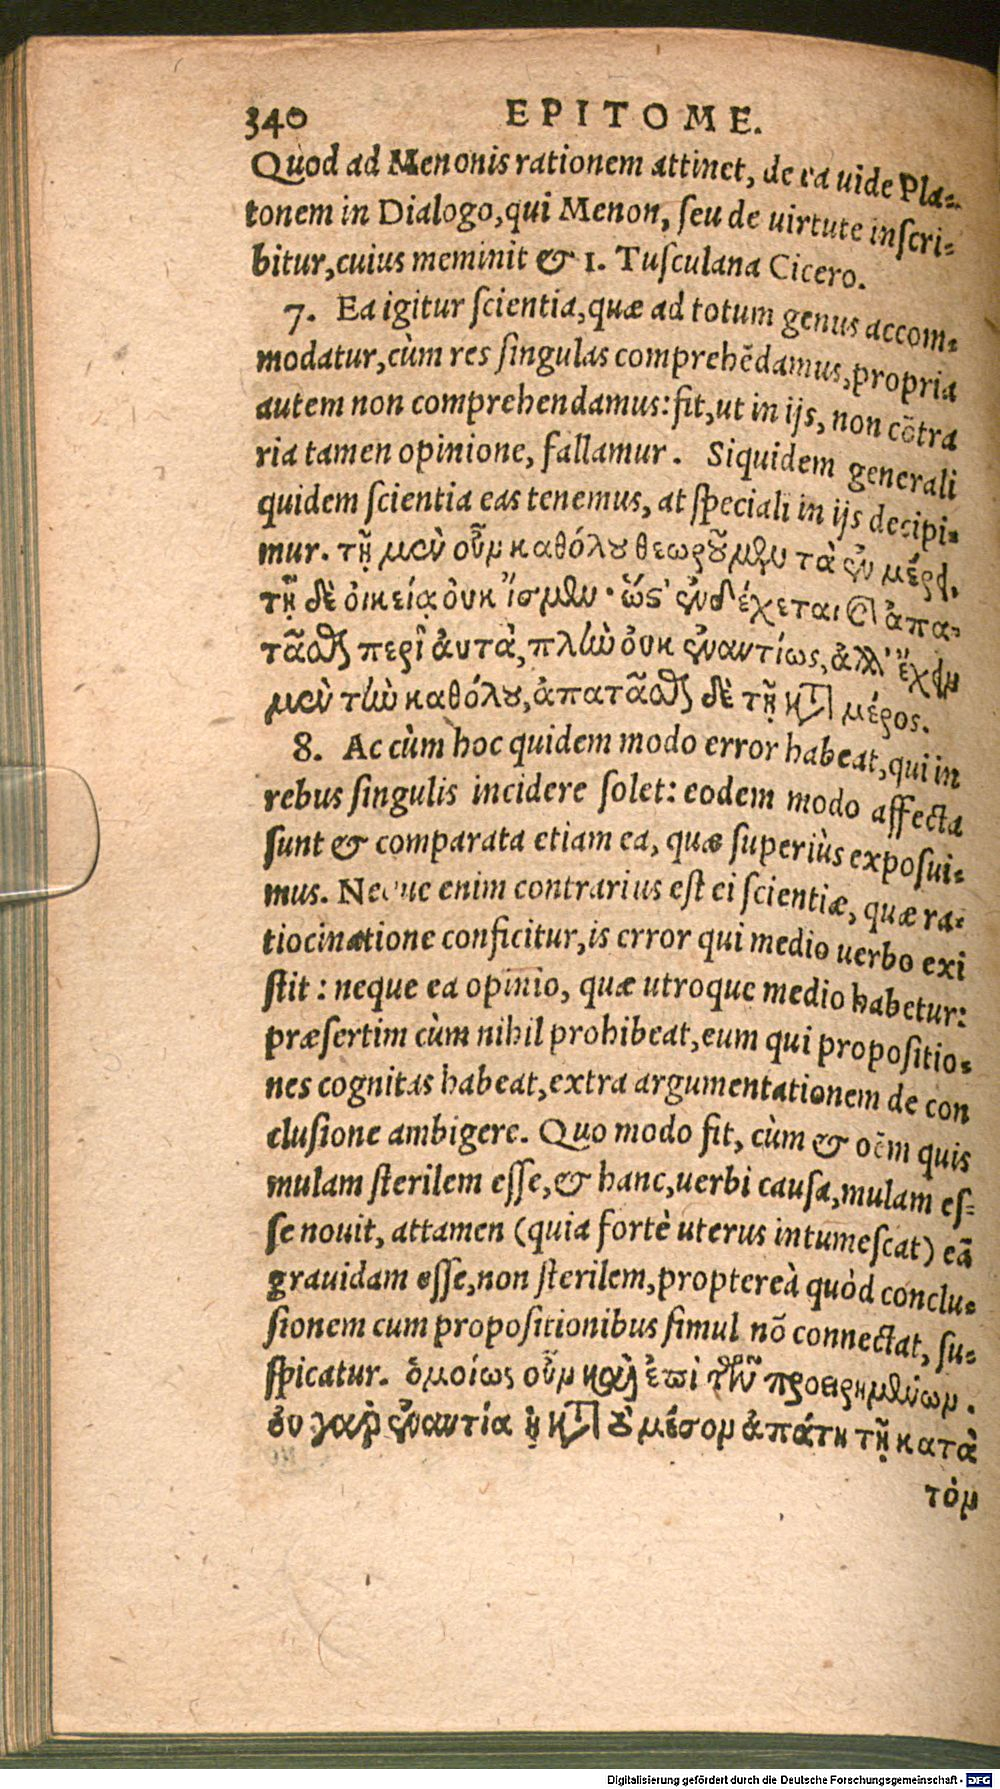 340 EPITOME.
Quod ad Menonis rationem attinet, de ea uide Pla-
tonem in Dialogo, qui Menon, seu de uirtute inscri-
bitur, cuius meminit & 1. Tusculana Cicero.
7. Ea igitur scientia, quæ ad totum genus accom-
modatur, cùm res singulas comprehēdamus, propria
autem non comprehendamus: fit, ut in ijs, non cōtra
ria tamen opinione, fallamur. Siquidem generali
quidem scientia eas tenemus, at speciali in ijs decipi-
mur. τῇ μὲν οὖν καθόλου θεωροῦμεν τὰ ἐν μέρει,
τῇ δὲ οἰκείᾳ οὐκ ἴσμεν· ὥστ' ἐνδέχεται καὶ ἀπα-
τᾶσθαι περὶ ἀυτὰ, πλὴν οὐκ ἐναντίως, ἀλλ' ἔχειν
μὲν τὴν καθόλου, ἀπατᾶσθαι δὲ τῇ κατὰ μέρος.
8. Ac cùm hoc quidem modo error habeat, qui in
rebus singulis incidere solet: eodem modo affecta
sunt & comparata etiam ea, quæ superiùs exposui-
mus. Neque enim contrarius est ei scientiæ, quæ ra-
tiocinatione conficitur, is error qui medio uerbo exi
stit: neque ea opinio, quæ utroque medio habetur:
præsertim cùm nihil prohibeat, eum qui propositio-
nes cognitas habeat, extra argumentationem de con
clusione ambigere. Quo modo fit, cùm & oēm quis
mulam sterilem esse, & hanc, uerbi causa, mulam es-
se nouit, attamen (quia fortè uterus intumescat) eā
grauidam esse, non sterilem, proptereà quòd conclu-
sionem cum propositionibus simul nō connectat, su-
spicatur. ὁμοίως οὖν καὶ ἐπὶ τῶν προειρημένων.
ὀυ γὰρ ἐναντία ἡ κατὰ τὸ μέσον ἀπάτη τῇ κατὰ
τὸν
Digitalisierung gefördert durch die Deutsche Forschungsgemeinschaft - DFG